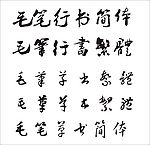 毛笔行书简体
毛筆行書繁體
毛筆草書繁體
毛筆草書繁體
毛笔草书简体